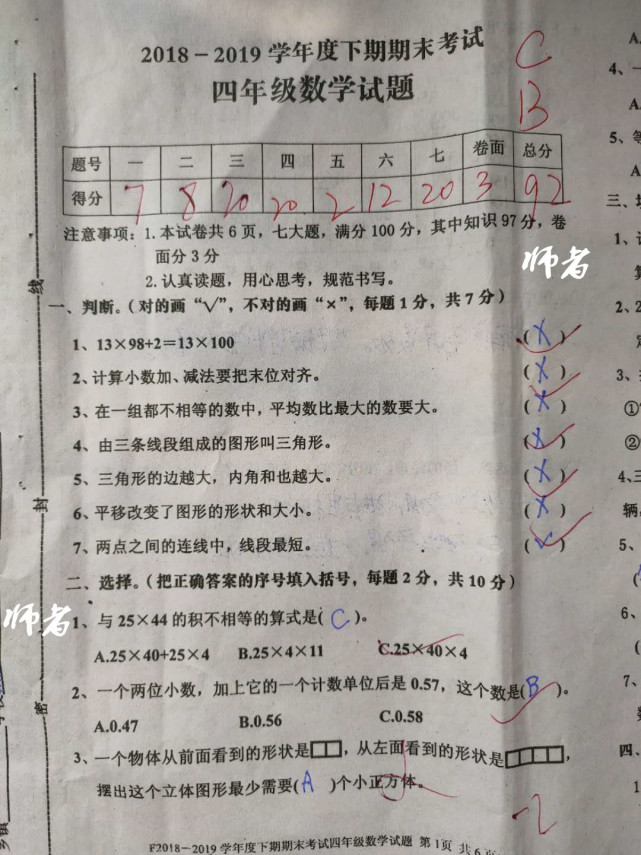 2018－2019 学年度下期期末考试
四年级数学试题
C
B
题号 一 二 三 四 五 六 七 卷面 总分
得分 7 8 20 20 2 12 20 3 92
注意事项：1. 本试卷共 6 页，七大题，满分 100 分，其中知识 97 分，卷
面分 3 分
师者
2. 认真读题，用心思考，规范书写。
一、判断。（对的画“√”，不对的画“×”，每题 1 分，共 7 分）
1、13×98+2＝13×100 （ X ）
2、计算小数加、减法要把末位对齐。 （ X ）
3、在一组都不相等的数中，平均数比最大的数要大。 （ X ）
4、由三条线段组成的图形叫三角形。 （ X ）
5、三角形的边越大，内角和也越大。 （ X ）
6、平移改变了图形的形状和大小。 （ X ）
7、两点之间的连线中，线段最短。 （ ✓ ）
二、选择。（把正确答案的序号填入括号，每题 2 分，共 10 分）
师者
1、与 25×44 的积不相等的算式是( C )。
A.25×40+25×4 B.25×4×11 C.25×40×4
2、一个两位小数，加上它的一个计数单位后是 0.57，这个数是( B )。
A.0.47 B.0.56 C.0.58
3、一个物体从前面看到的形状是□□，从左面看到的形状是□□□□，
摆出这个立体图形最少需要( A )个小正方体。
-2
F2018－2019 学年度下期期末考试四年级数学试题 第 1页 共 6
线
封
密
A.
4、
A
5、等
A
三、
1、
2、2
3、
①
②
4、三
辆
5、
(
6、
(
7、
四、
1